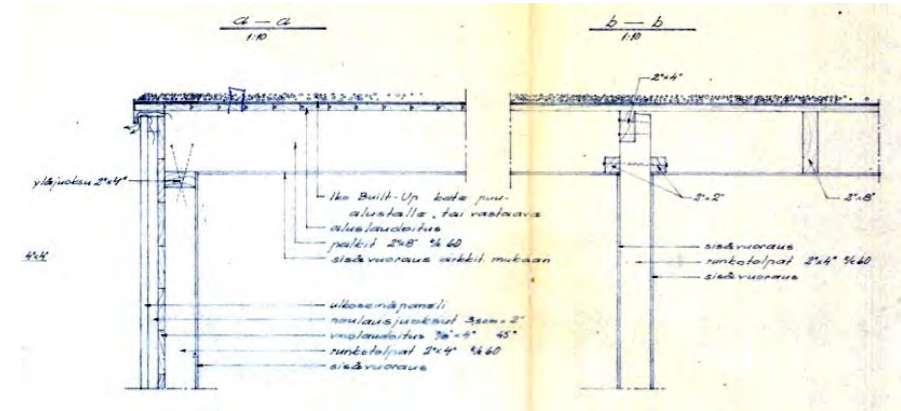 a — a
1:10
b — b
1:10
2"x4"
yläjuoksu 2"x4"
4"x4"
Iko Built-Up kate puu-
alustalle, tai vastaava
aluslaudoitus
palkit 2"x8" k/k 60
sisävuoraus arkkit. mukaan
2"x2"
2"x8"
sisävuoraus
runkotolpat 2"x4" k/k 60
sisävuoraus
ulkoseinäpaneli
naulausjuoksut
vinolaudoitus 7/8"x4" 45°
runkotolpat 2"x4" k/k 60
sisävuoraus